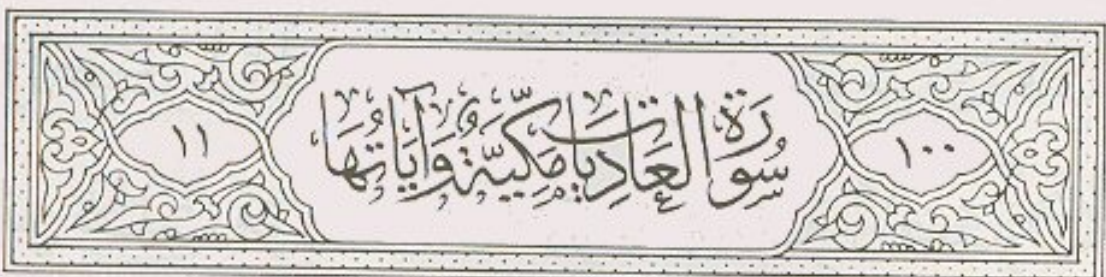 ١٠٠
سُورَةُ العَادِيَاتِ مَكِّيَّةٌ وَآيَاتُهَا
١١